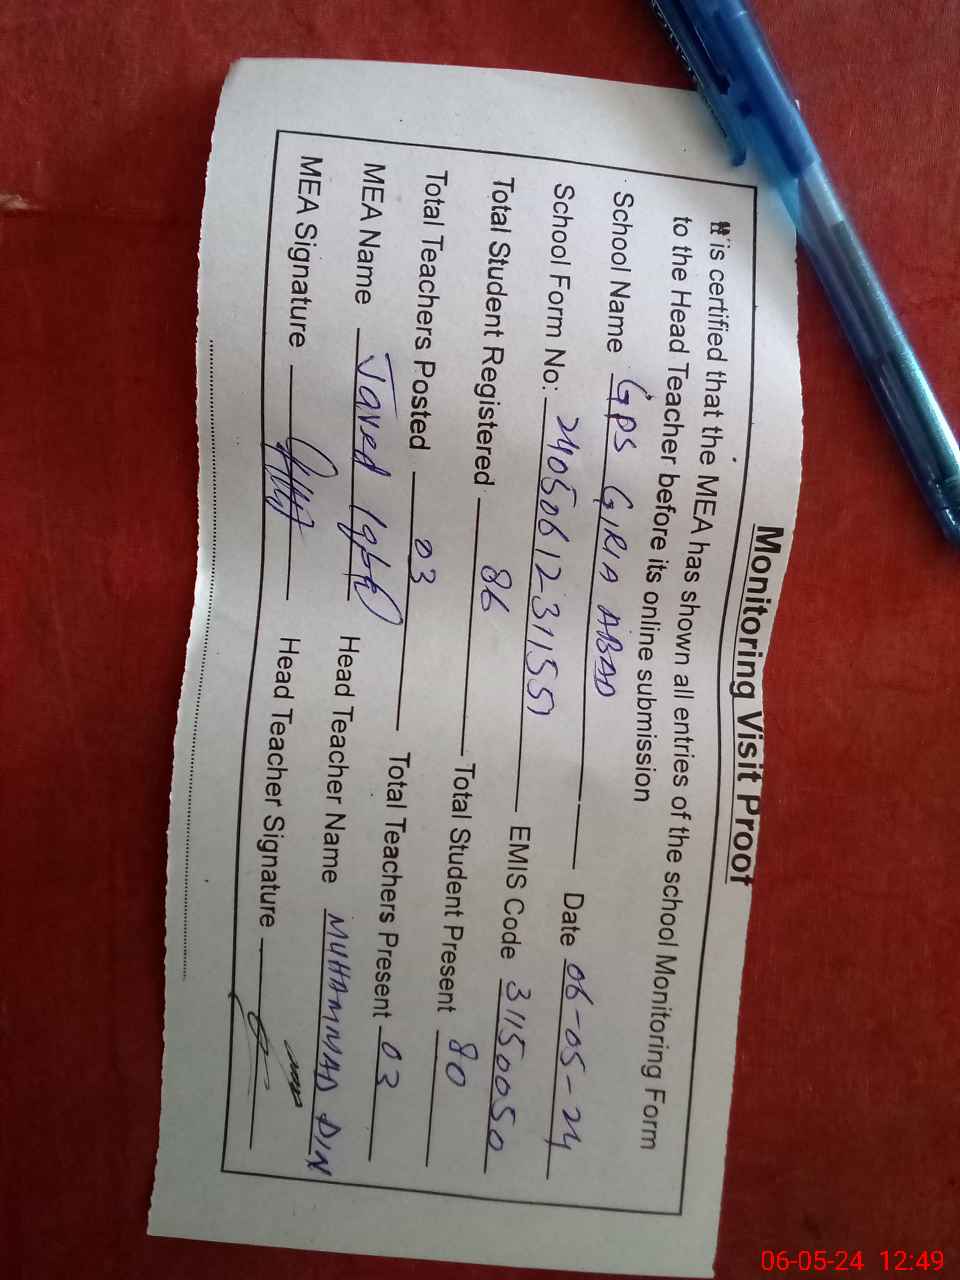 Monitoring Visit Proof
It is certified that the MEA has shown all entries of the school Monitoring Form
to the Head Teacher before its online submission
School Name GPS GIRIA ABAD Date 06-05-24
School Form No: 2405061231155 EMIS Code 31150050
Total Student Registered 86 Total Student Present 80
Total Teachers Posted 03 Total Teachers Present 03
MEA Name Javed Iqbal Head Teacher Name MUHAMMAD DIN
MEA Signature Head Teacher Signature
06-05-24 12:49